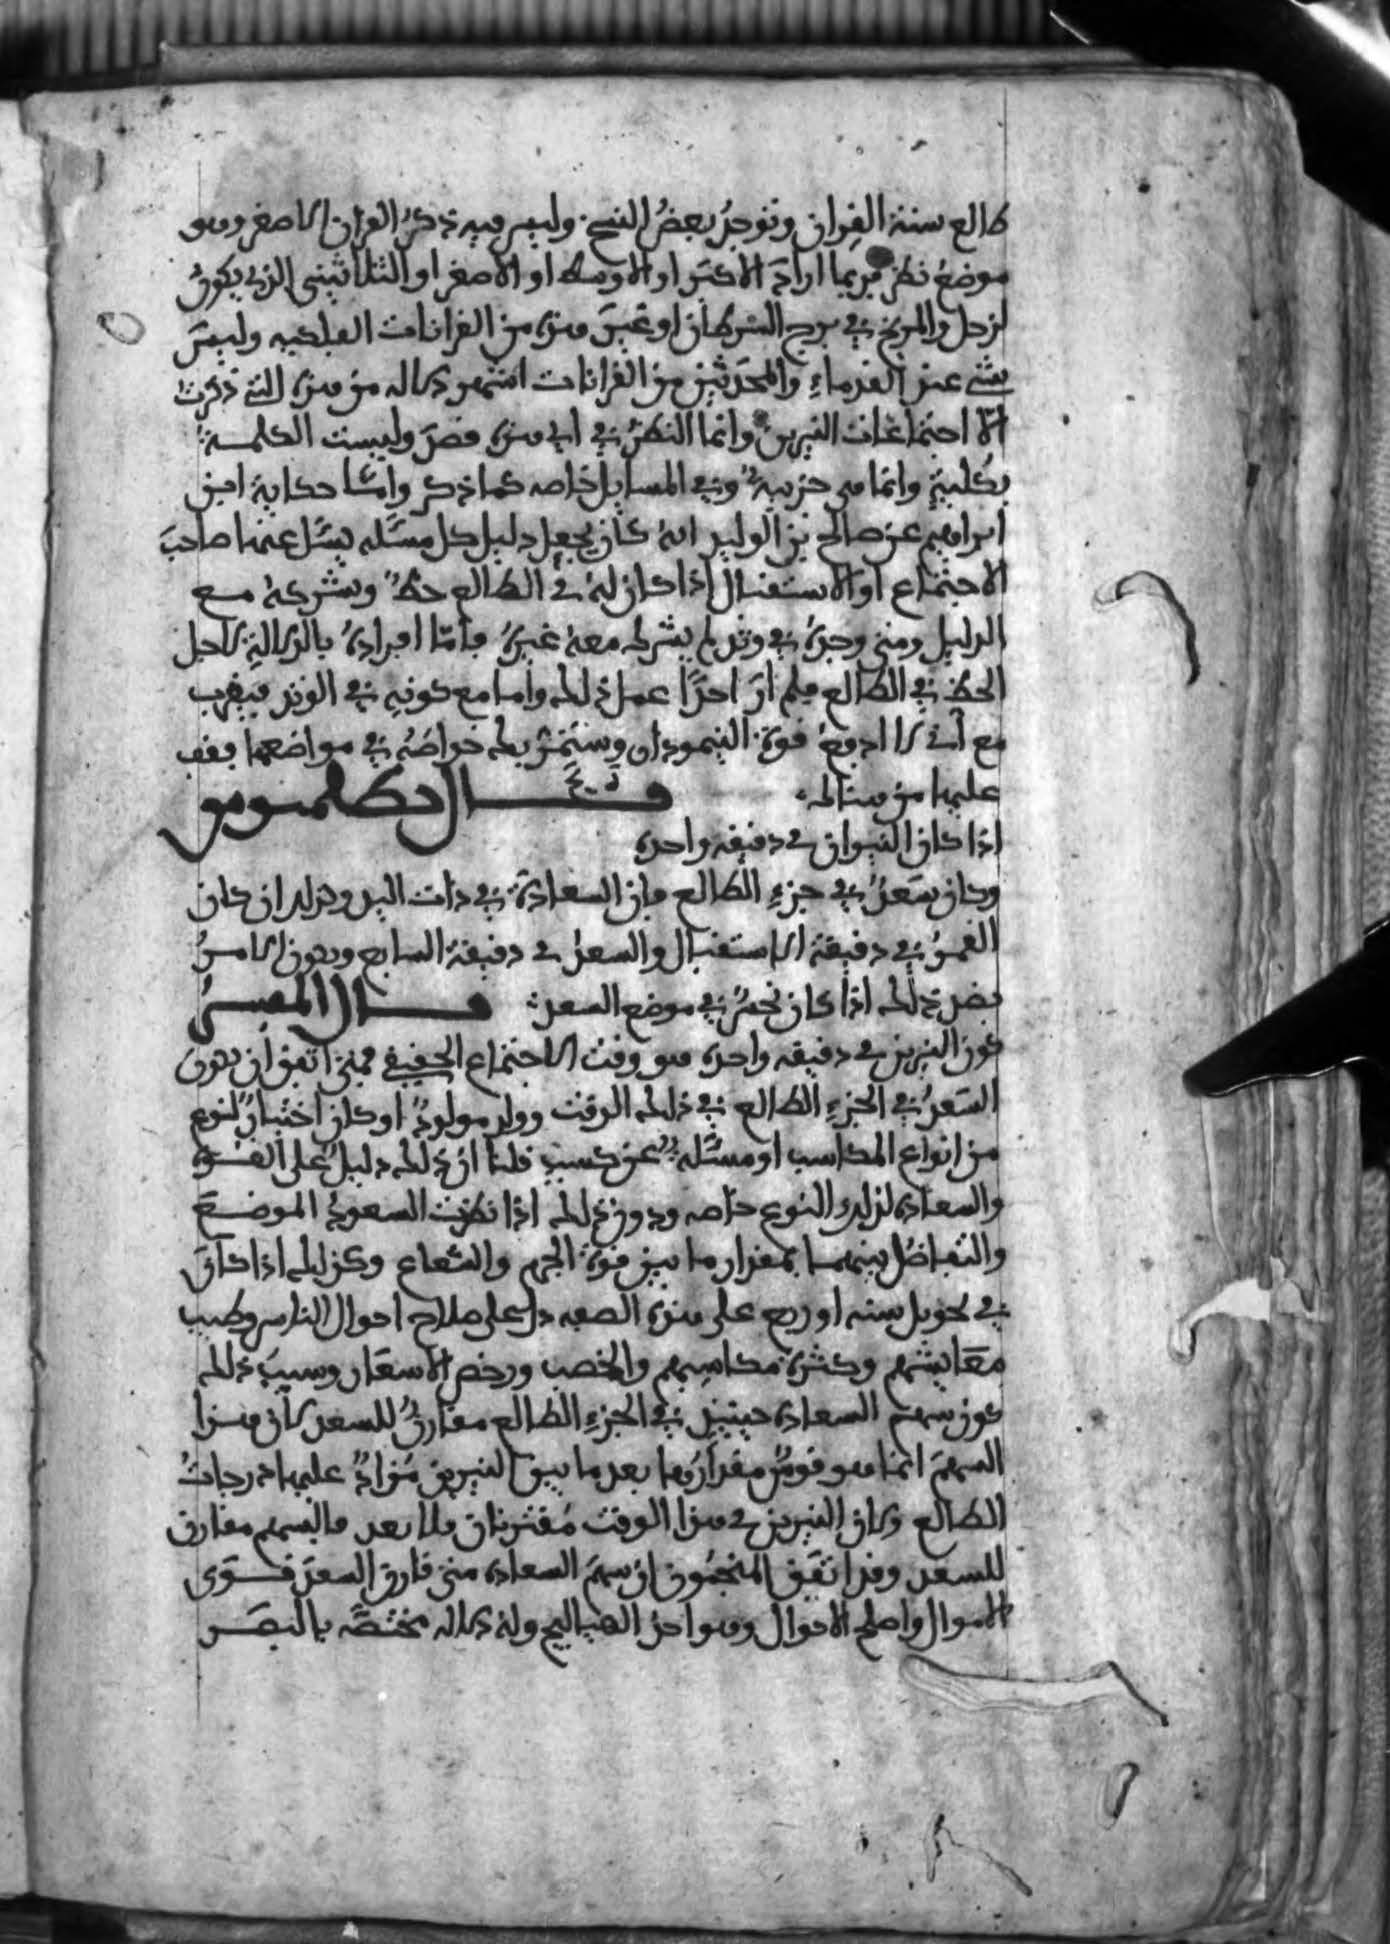 طالع سنة القران وتوجد بعض النسخ وليس فيه ذكر القران الاصغر وهو
موضع نظر فربما اراد الاكبر او الاوسط او الاصغر او الثلاثيني الذي يكون
لزحل والمريخ في برج السرطان او غير هذه من القرانات الفلكيه وليس
شي عند القدماء والمحدثين من القرانات اشهر دلاله من هذه التي ذكرت
الا اجتماعات النيرين وانما النظر في اي هذه قصد وليست الكلمة
بكلية وانما هي جزيية وفي المسايل خاصه كما ذكر وامّا حكاية ابن
ابراهيم عن صالح بن الوليد انه كان يجعل دليل كل مسئله يسئل عنها صاحب
الاجتماع او الاستقبال اذا كان له في الطالع حظ ويشركه مع
الدليل ومتى وجده في وتد لم يشرك معه غيره فأمّا افراده بالدلالة لاجل
الحظ في الطالع فلم ار احدًا عمل ذلك واما مع كونه في الوتد فيقرب
مع أني لا ادفع قوة النيمودار وستمر بك خواصّه في مواضعها فقف
عليها من هنالك قال بطلميوس
اذا كان النيران في دقيقه واحده
وكان سعدٌ في جزء الطالع فان السعادة في ذات اليد وكذلك ان كان
القمر في دقيقة الاستقبال والسعد في دقيقة السابع ويكون الامر
بضد ذلك اذا كان نحسٌ في موضع السعد قال المفسر
كون النيرين في دقيقه واحده هو وقت الاجتماع الحقيقي فمتى اتفق ان يكون
السعد في الجزء الطالع في ذلك الوقت وولد مولودٌ او كان اختيارٌ لنوع
من انواع المكاسب او مسئلةٌ عن كسب قلنا ان ذلك دليلٌ على القوة
والسعاده لذلك النوع خاصه ودون ذلك اذا نظرت السعود الموضع
والتفاضل بينهما بمقدار ما بين قوة الجرم والشعاع وكذلك اذا كان
في تحويل سنه او ربع على هذه الصفه دل على صلاح احوال الناس وطيب
معايشهم وكثرة مكاسبهم والخصب ورخص الاسعار وسبب ذلك
كون سهم السعاده حينيذ في الجزء الطالع مقارنٌ للسعد لان هذا
السهم انما هو قوسٌ مقدارها بعد ما بين النيرين مزادٌ عليها درجات
الطالع ولان النيرين في هذا الوقت مقترنان فلا بعد فالسهم مقارن
للسعد وقد اتفق المنجمون ان سهم السعاده متى قارن السعد قوى
الاموال واصلح الاحوال وهو احد الهياليج وله دلاله مختصّه بالنصر